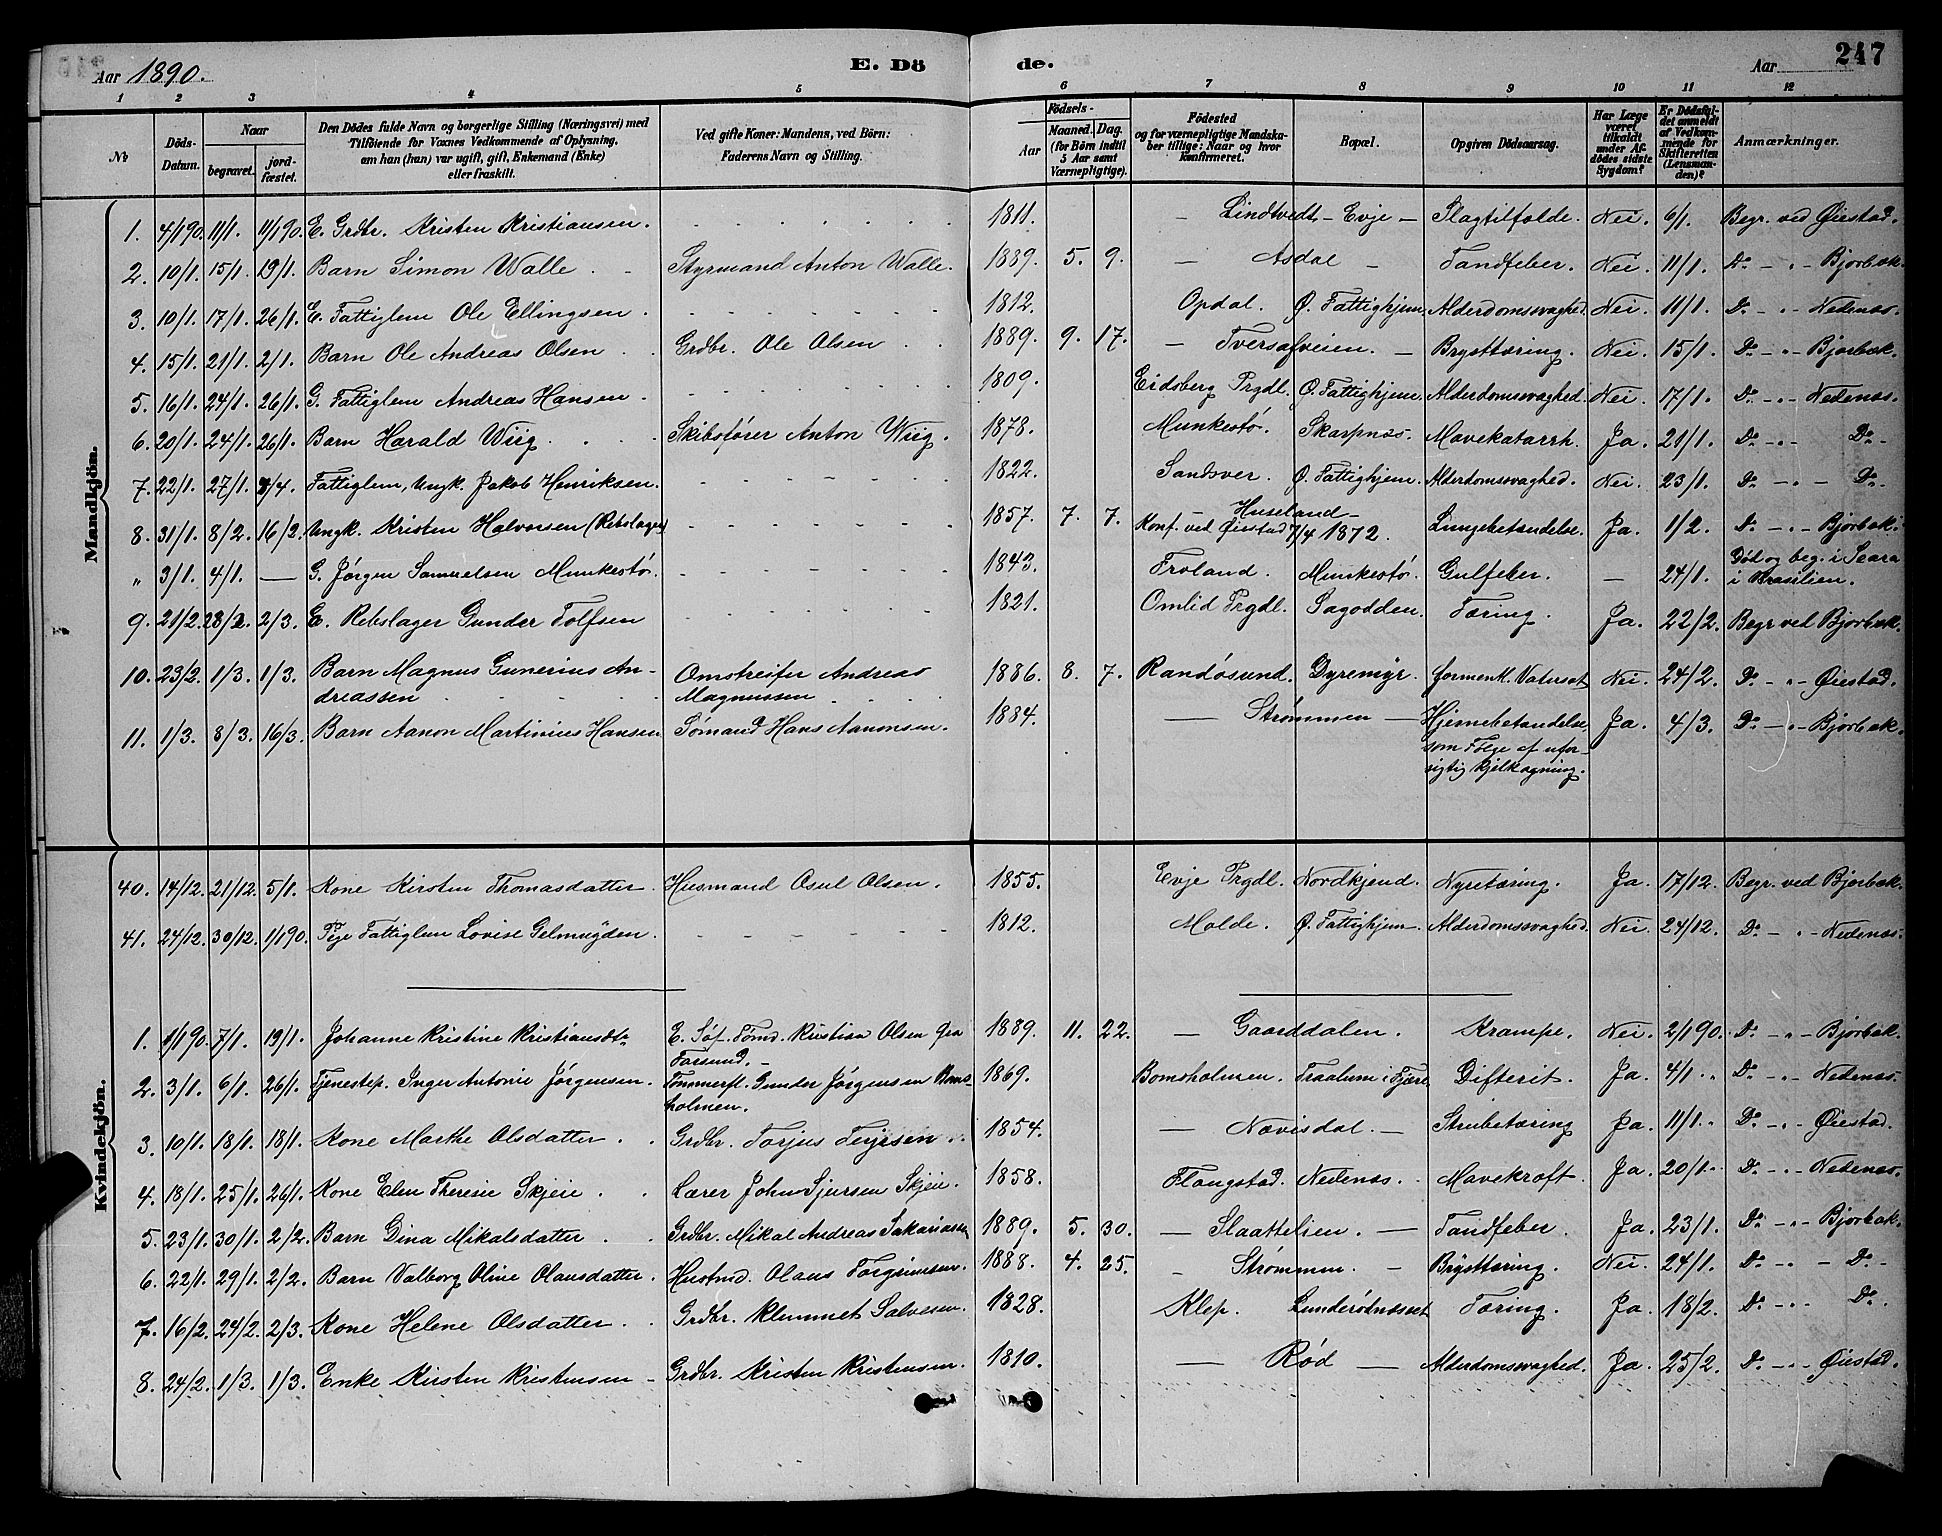 Aar 1890. E. Dö de. Aar 247
1 2 3 4 5 6 7 8 9 10 11 12
№ Döds-Datum. Naar begravet. jordfæstet. Den Dödes fulde Navn og borgerlige Stilling (Næringsvei) med Tilföiende for Voxnes Vedkommende af Oplysning, om han (hun) var ugift, gift, Enkemand (Enke) eller fraskilt. Ved gifte Koner: Mandens, ved Börn: Faderens Navn og Stilling. Födsels- Aar Maaned. Dag. (for Börn indtil 5 Aar samt Værnepligtige). Födested og for værnepligtige Mandskaber tillige: Naar og hvor konfirmeret. Bopæl. Opgiven Dödsaarsag. Har Læge været tilkaldt under Afdödes sidste Sygdom? Er Dödsfaldet anmeldt af Vedkommende for Skifteretten (Lensmanden)? Anmærkninger.
Mandkjön.
1. 4/1 90. 11/1. 11/1 90. E. Grdbr. Kristen Kristiansen. 1811. — Lindtvedt - Evje — Slagtilfælde. Nei. 6/1. Begr. ved Øiestad.
2. 10/1. 15/1. 19/1. Barn Simon Walle. Styrmand Anton Walle. 1889. 5. 9. — Asdal — Tandfeber. Nei. 11/1. Do — " - Bjorbæk.
3. 10/1. 17/1. 26/1. E. Fattiglem Ole Ellingsen. 1812. Opdal. Ø. Fattighjem. Alderdomssvaghed. Nei. 11/1. Do — " - Nedenæs.
4. 15/1. 21/1. 2/1. Barn Ole Andreas Olsen. Grdbr. Ole Olsen. 1889. 9. 17. — Tversafveien. — Brysttæring. Nei. 15/1. Do — " - Bjorbæk.
5. 16/1. 24/1. 26/1. G. Fattiglem Andreas Hansen. 1809. Eidsberg Prgdl. Ø. Fattighjem. Alderdomssvaghed. Nei. 17/1. Do — " - Nedenæs.
6. 20/1. 24/1. 26/1. Barn Harald Wiig. Skibsfører Anton Wiig. 1878. Munkestø. Skarpnæs. Mavekatarrh. Ja. 21/1. Do — " - Do
7. 22/1. 27/1. Fattiglem, Ungk. Jakob Henriksen. 1822. Sandsver. Ø. Fattighjem. Alderdomssvaghed. Nei. 23/1. Do — " - Do
8. 31/1. 8/2. 16/2. Ungk. Kristen Halvorsen (Rebslager) 1857. 7. 7. — Huseland — Konf. ved Øiestad 7/4 1872. Lungebetændelse. Ja. 1/2. Do — " - Bjorbæk.
" 3/1. 4/1. — G. Jørgen Samuelsen Munkestø. 1843. Froland. Munkestø. Gulfeber. — 24/1. Død og beg. i Seara i Brasilien.
9. 21/2. 28/2. 2/3. E. Rebslager Gunder Tolfsen 1821. Omlid Prgdl. Sagodden. Tæring. Ja. 22/2. Begr. ved Bjorbæk.
10. 23/2. 1/3. 1/3. Barn Magnus Gunerius Andreassen Omstreifer Andreas Magnussen 1886. 8. 7. Randøsund. Dyremyr. Nei. 24/2. Do — " - Øiestad.
11. 1/3. 8/3. 16/3. Barn Aanon Martinius Hansen Sømand Hans Aanonsen. 1884. — Strømmen — Hjernebetændelse, som Følge af uforsigtig Kjelkagning. Ja. 4/3. Do — " - Bjorbæk.
Kvindekjön.
40. 14/12. 21/12. 5/1. Kone Kirsten Thomasdatter. Husmand Osul Olsen. 1855. Evje Prgdl. Nordkjend. Nyretæring. Ja. 17/12. Begr. ved Bjorbæk.
41. 24/12. 30/12. 1/1 90. Pige Fattiglem Lovise Gelmuyden. 1812. Molde. Ø. Fattighjem. Alderdomssvaghed. Nei. 24/12. Do — " - Nedenæs.
1. 1/1 90. 7/1. 19/1. Johanne Kristine Kristiansdtr E. Søf. Tømd. Kristian Olsen fra Farsund. — 1889. 11. 22. — Gaarddalen. Krampe. Nei. 2/1 90. Do — " - Bjorbæk.
2. 3/1. 6/1. 26/1. Tjenestep. Inger Antonie Jørgensen. Tømmerfl. Gunder Jørgensen Bomsholmen. 1869. Bomsholmen. Traalum i Fjære Difterit. Ja. 4/1. Do — " - Nedenæs.
3. 10/1. 18/1. 18/1. Kone Marthe Olsdatter. Grdbr. Torjus Terjesen 1854. — Nævisdal. — Strubetæring Ja. 11/1. Do — " - Øiestad.
4. 18/1. 25/1. 26/1. Kone Elen Theresie Skjeie. Lærer John Sjursen Skjeie. 1858. Flangstad. Nedenæs. Mavekræft. Ja. 20/1. Do — " - Nedenæs.
5. 23/1. 30/1. 2/2. Barn Dina Mikalsdatter. Grdbr. Mikal Andreas Sakariasen 1889. 5. 30. — Slaattelien. — Tandfeber. Ja. 23/1. Do — " - Bjorbæk.
6. 22/1. 29/1. 2/2. Barn Valborg Oline Olausdatter. Husmd. Olaus Torgrimsen. 1888. 4. 25. — Strømmen. — Brysttæring. Nei. 24/1. Do — " - Do
7. 16/2. 24/2. 2/3. Kone Helene Olsdatter. Grdbr. Klemmet Salvesen. 1828. Klep. Lunderødnæsset Tæring. Ja. 18/2. Do — " - Do
8. 24/2. 1/3. 1/3. Enke Kirsten Kristensen Grdbr. Kristen Kristensen. 1810. — Rød — Alderdomssvaghed. Ja. 25/2. Do — " - Øiestad.